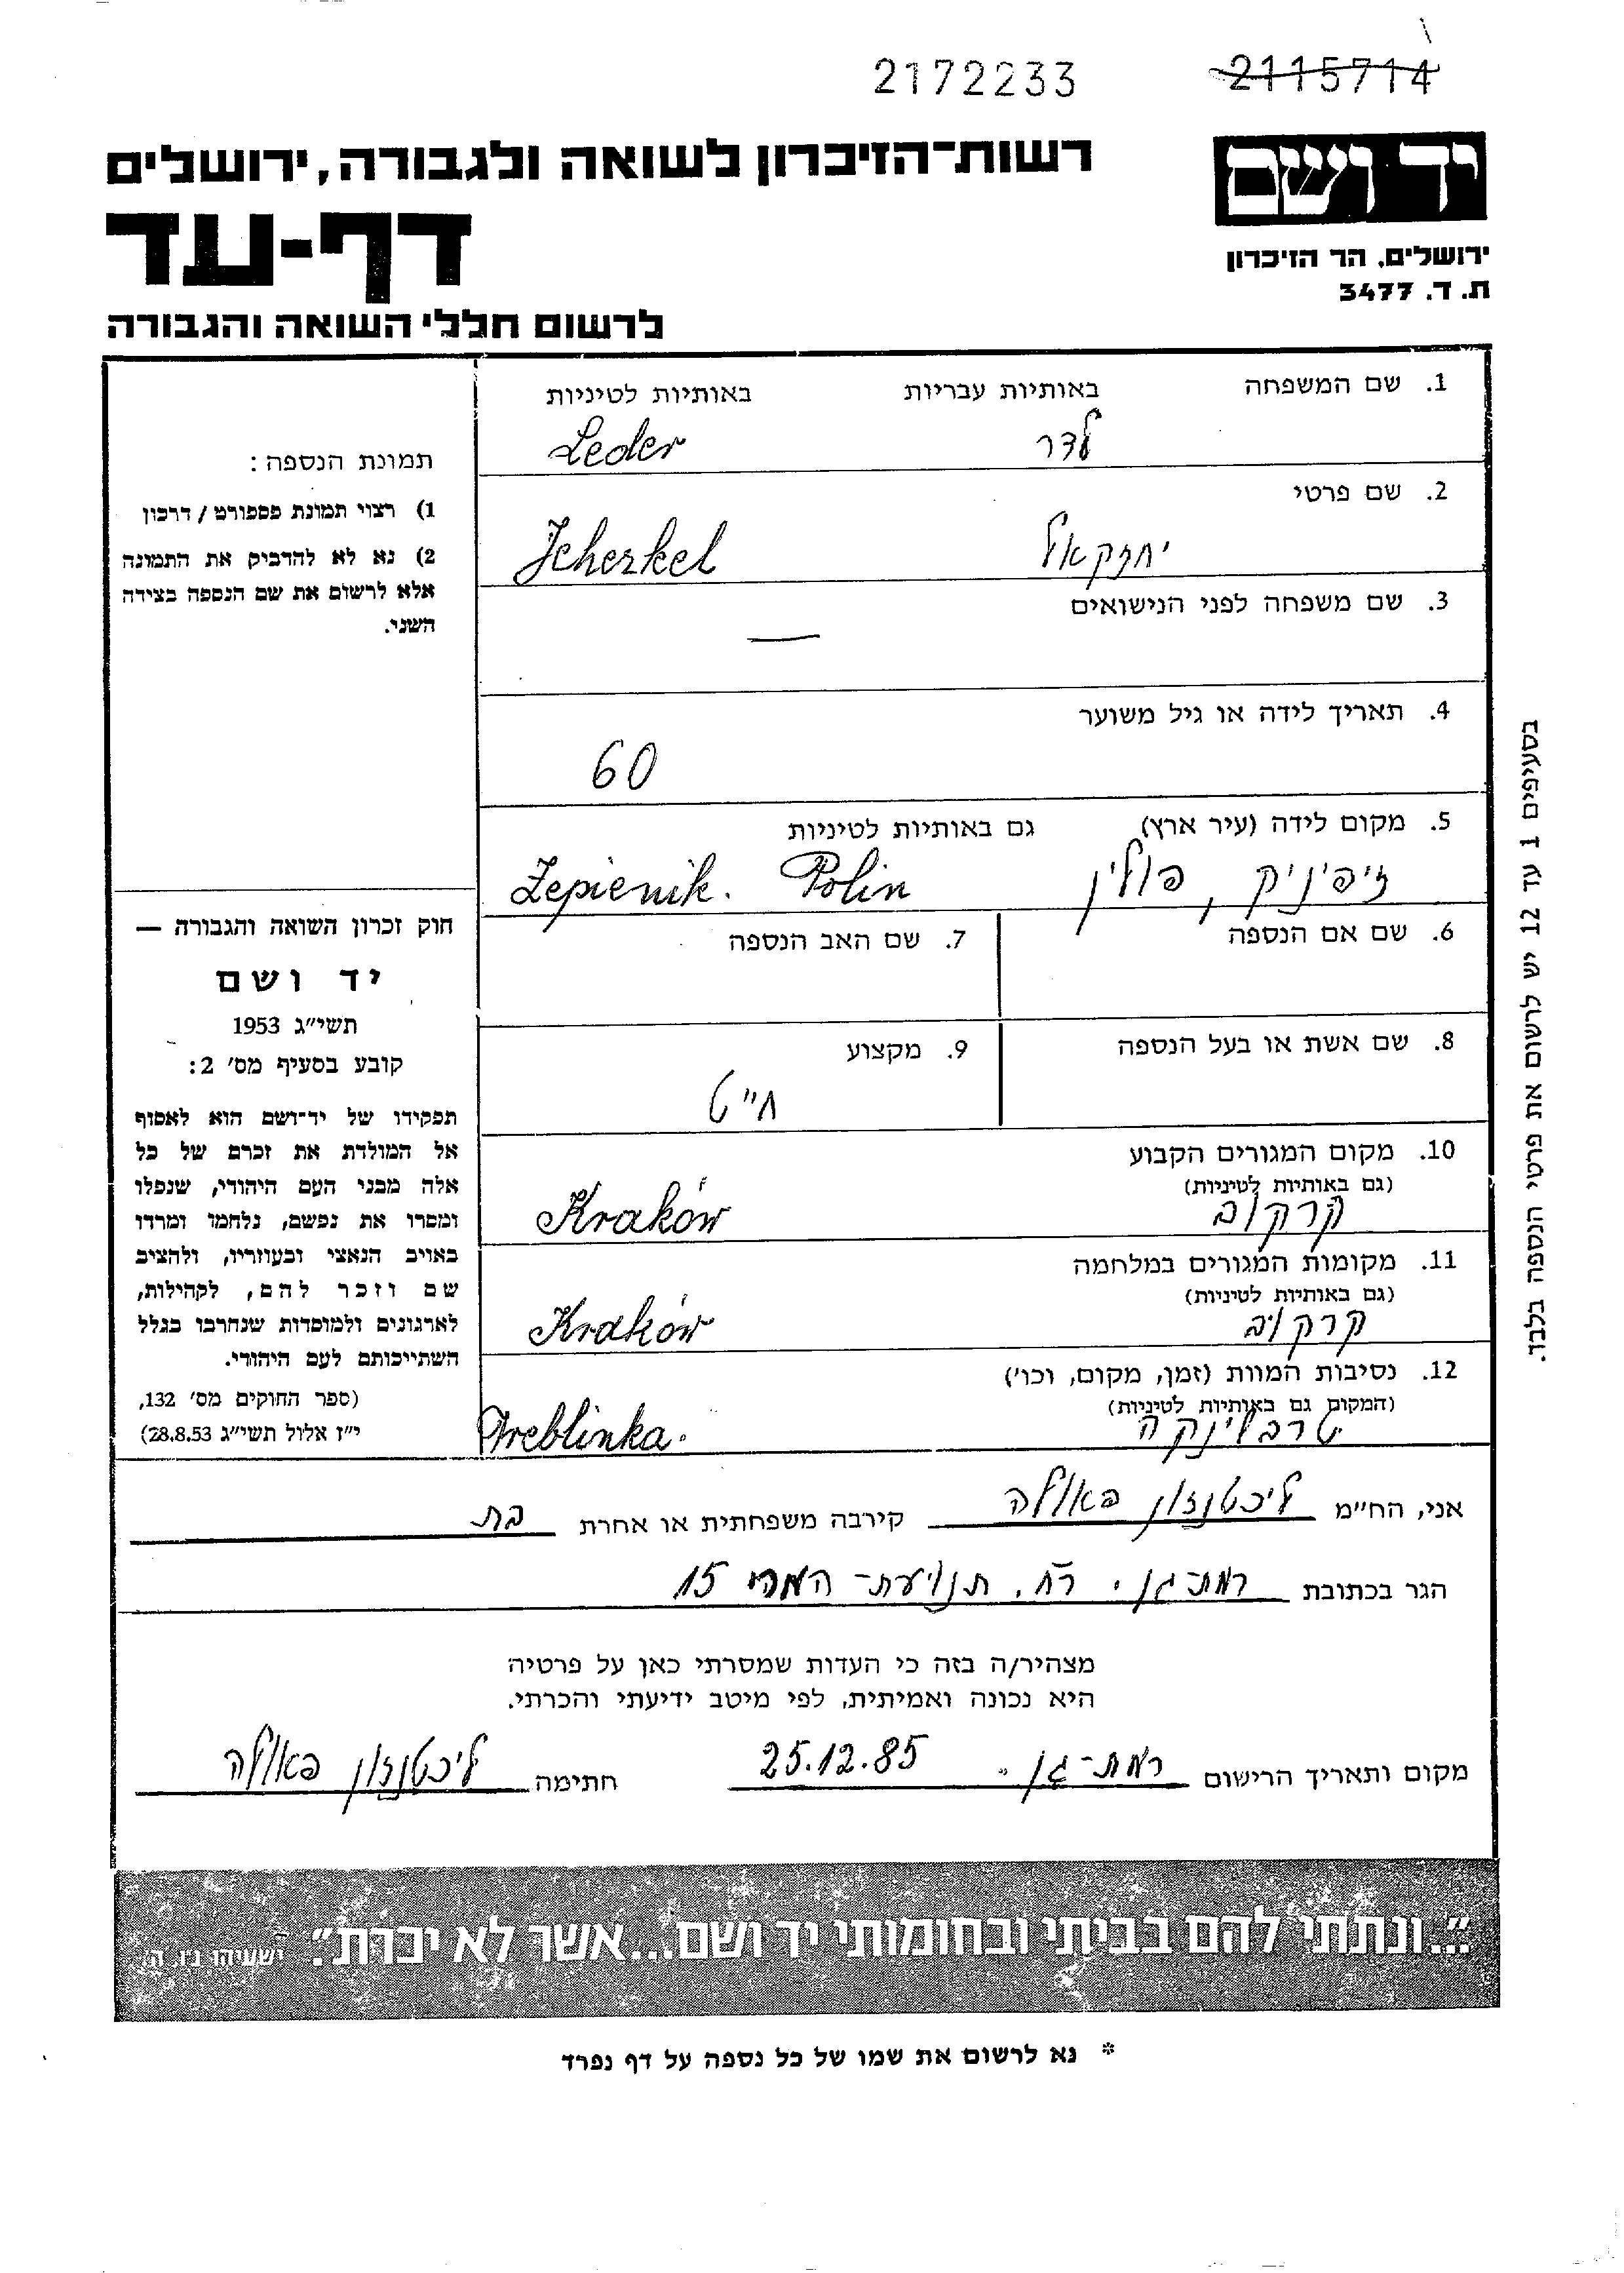 2172233 2115714
יד ושם
רשות-הזיכרון לשואה ולגבורה, ירושלים
דף-עד
ירושלים, הר הזיכרון
ת. ד. 3477
לרשום חללי השואה והגבורה
1. שם המשפחה באותיות עבריות באותיות לטיניות
לדר Leder
2. שם פרטי
יחזקאל Jcheskel
3. שם משפחה לפני הנישואים
—
4. תאריך לידה או גיל משוער
60
5. מקום לידה (עיר ארץ) גם באותיות לטיניות
זיפיניק, פולין Zepienik. Polin
6. שם אם הנספה 7. שם האב הנספה
8. שם אשת או בעל הנספה 9. מקצוע
חייט
10. מקום המגורים הקבוע
(גם באותיות לטיניות)
קרקוב Kraków
11. מקומות המגורים במלחמה
(גם באותיות לטיניות)
קרקוב Kraków
12. נסיבות המוות (זמן, מקום, וכו')
(המקום גם באותיות לטיניות)
טרבלינקה Treblinka.
תמונת הנספה:
1) רצוי תמונת פספורט / דרכון
2) נא לא להדביק את התמונה
אלא לרשום את שם הנספה בצידה
השני.
חוק זכרון השואה והגבורה —
יד ושם
תשי״ג 1953
קובע בסעיף מס׳ 2:
תפקידו של יד־ושם הוא לאסוף
אל המולדת את זכרם של כל
אלה מבני העם היהודי, שנפלו
ומסרו את נפשם, נלחמו ומרדו
באויב הנאצי ובעוזריו, ולהציב
שם וזכר להם, לקהילות,
לארגונים ולמוסדות שנחרבו בגלל
השתייכותם לעם היהודי.
(ספר החוקים מס׳ 132,
י״ז אלול תשי״ג 28.8.53)
בסעיפים 1 עד 12 יש לרשום את פרטי הנספה בלבד.
אני, הח״מ ליכטנזון פאולה קירבה משפחתית או אחרת בת
הגר בכתובת רמת-גן, רח. תנועת-המרי 15
מצהיר/ה בזה כי העדות שמסרתי כאן על פרטיה
היא נכונה ואמיתית, לפי מיטב ידיעתי והכרתי.
מקום ותאריך הרישום רמת-גן. 25.12.85 חתימה ליכטנזון פאולה
״...ונתתי להם בביתי ובחומותי יד ושם...אשר לא יכרת״. ישעיהו נ״ו, ה׳.
* נא לרשום את שמו של כל נספה על דף נפרד